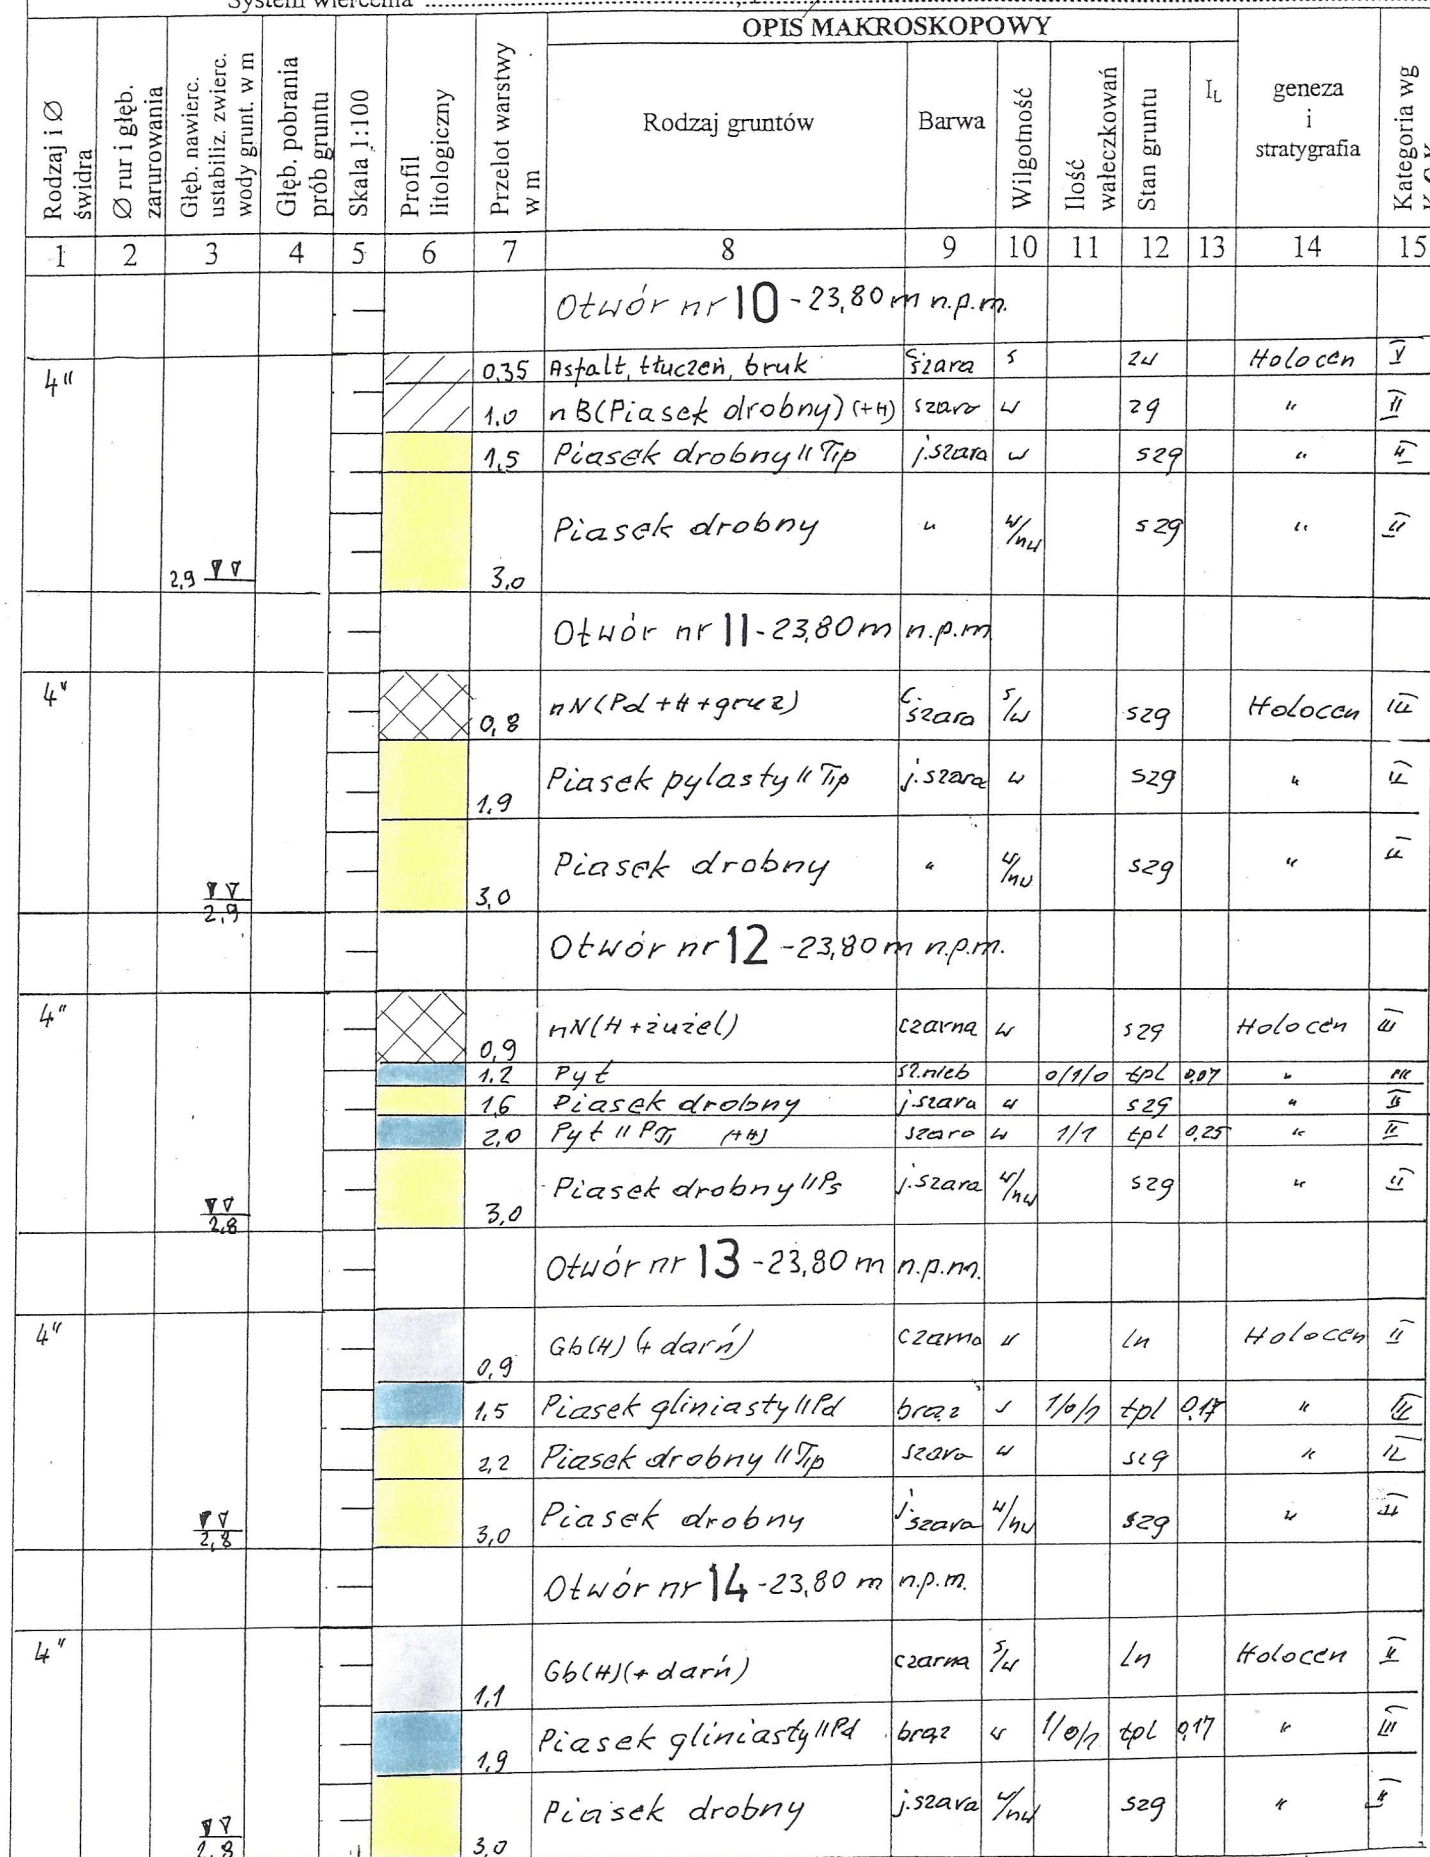 System wiercenia
OPIS MAKROSKOPOWY
Rodzaj i Ø świdra
Ø rur i głęb. zarurowania
Głęb. nawierc. ustabiliz. zwierc. wody grunt. w m
Głęb. pobrania prób gruntu
Skala 1:100
Profil litologiczny
Przelot warstwy w m
Rodzaj gruntów
Barwa
Wilgotność
Ilość wałeczkowań
Stan gruntu
I_L
geneza i stratygrafia
Kategoria wg
1 2 3 4 5 6 7 8 9 10 11 12 13 14 15
Otwór nr 10 - 23,80 m n.p.m.
4" 0,35 Asfalt, tłuczeń, bruk c. szara s zw Holocen V
1,0 nB(Piasek drobny) (+H) szara w zg " II
1,5 Piasek drobny // Πp j.szara w szg " II
2,9 3,0 Piasek drobny " w/nw szg " II
Otwór nr 11 - 23,80 m n.p.m
4" 0,8 nN(Pd + H + gruz) c. szara s/w szg Holocen III
1,9 Piasek pylasty // Πp j.szara w szg " II
2,9 3,0 Piasek drobny " w/nw szg " II
Otwór nr 12 - 23,80 m n.p.m.
4" 0,9 nN(H + żużel) czarna w szg Holocen III
1,2 Pył sz.nieb 0/1/0 tpl 0,07 " III
1,6 Piasek drobny j.szara w szg " II
2,0 Pył // Pπ (+H) szara w 1/1 tpl 0,25 " II
2,8 3,0 Piasek drobny // Ps j.szara w/nw szg " II
Otwór nr 13 - 23,80 m n.p.m.
4" 0,9 Gb(H) (+ darń) czarna w ln Holocen II
1,5 Piasek gliniasty // Pd brąz w 1/0/1 tpl 0,17 " III
2,2 Piasek drobny // Πp szara w szg " II
2,8 3,0 Piasek drobny j. szara w/nw szg " II
Otwór nr 14 - 23,80 m n.p.m.
4" 1,1 Gb(H)(+ darń) czarna s/w ln Holocen II
1,9 Piasek gliniasty // Pd brąz w 1/0/1 tpl 0,17 " III
2,8 3,0 Piasek drobny j.szara w/nw szg " II